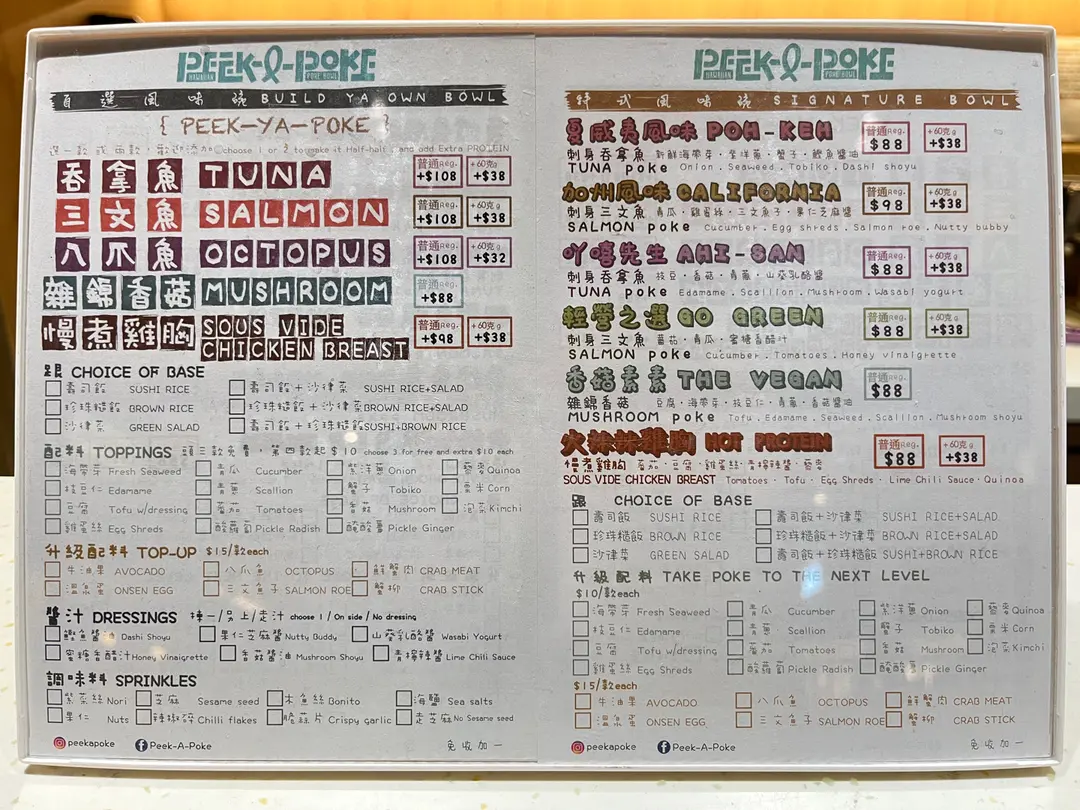 PEEK-A-POKE
HAWAIIAN POKE BOWL
自選風味碗 BUILD YA OWN BOWL
{ PEEK-YA-POKE }
choose 1 or 2 to make it Half-half, and add Extra PROTEIN
吞拿魚 TUNA 普通Reg. +$108 +60克g +$38
三文魚 SALMON 普通Reg. +$108 +60克g +$38
八爪魚 OCTOPUS 普通Reg. +$108 +60克g +$32
雜錦香菇 MUSHROOM 普通Reg. +$88
慢煮雞胸 SOUS VIDE CHICKEN BREAST 普通Reg. +$98 +60克g +$38
跟 CHOICE OF BASE
壽司飯 SUSHI RICE 壽司飯+沙律菜 SUSHI RICE+SALAD
珍珠糙飯 BROWN RICE 珍珠糙飯+沙律菜 BROWN RICE+SALAD
沙律菜 GREEN SALAD 壽司飯+珍珠糙飯 SUSHI+BROWN RICE
配料 TOPPINGS 頭三款免費,第四款起$10 choose 3 for free and extra $10 each
海帶芽 Fresh Seaweed 青瓜 Cucumber 紫洋蔥 Onion 藜麥 Quinoa
枝豆仁 Edamame 青蔥 Scallion 蟹子 Tobiko 粟米 Corn
豆腐 Tofu w/dressing 蕃茄 Tomatoes 香菇 Mushroom 泡菜 Kimchi
雞蛋絲 Egg Shreds 酸蘿蔔 Pickle Radish 酸酸薑 Pickle Ginger
升級配料 TOP-UP $15/款each
牛油果 AVOCADO 八爪魚 OCTOPUS 鮮蟹肉 CRAB MEAT
溫泉蛋 ONSEN EGG 三文魚子 SALMON ROE 蟹柳 CRAB STICK
醬汁 DRESSINGS 揀一/另上/走汁 choose 1 / On side / No dressing
鰹魚醬油 Dashi Shoyu 果仁芝麻醬 Nutty Buddy 山葵乳酪醬 Wasabi Yogurt
蜜糖香醋汁 Honey Vinaigrette 香菇醬油 Mushroom Shoyu 青檸辣醬 Lime Chili Sauce
調味料 SPRINKLES
紫菜絲 Nori 芝麻 Sesame seed 木魚絲 Bonito 海鹽 Sea salts
果仁 Nuts 辣椒碎 Chilli flakes 脆蒜片 Crispy garlic 走芝麻 No Sesame seed
peekapoke Peek-A-Poke 免收加一
PEEK-A-POKE
HAWAIIAN POKE BOWL
特式風味碗 SIGNATURE BOWL
夏威夷風味 POH-KEH 普通Reg. $88 +60克g +$38
刺身吞拿魚 新鮮海帶芽・紫洋蔥・蟹子・鰹魚醬油
TUNA poke Onion . Seaweed . Tobiko . Dashi shoyu
加州風味 CALIFORNIA 普通Reg. $98 +60克g +$38
刺身三文魚 青瓜・雞蛋絲・三文魚子・果仁芝麻醬
SALMON poke Cucumber . Egg shreds . Salmon roe . Nutty bubby
吖嘻先生 AHI-SAN 普通Reg. $88 +60克g +$38
刺身吞拿魚 枝豆・香菇・青蔥・山葵乳酪醬
TUNA poke Edamame . Scallion . Mushroom . Wasabi yogurt
輕營之選 GO GREEN 普通Reg. $88 +60克g +$38
刺身三文魚 蕃茄・青瓜・蜜糖香醋汁
SALMON poke Cucumber . Tomatoes . Honey vinaigrette
香菇素素 THE VEGAN 普通Reg. $88
雜錦香菇 豆腐・海帶芽・枝豆仁・青蔥・香菇醬油
MUSHROOM poke Tofu . Edamame . Seaweed . Scallion . Mushroom shoyu
火辣辣雞胸 HOT PROTEIN 普通Reg. $88 +60克g +$38
慢煮雞胸 蕃茄・豆腐・雞蛋絲・青檸辣醬・藜麥
SOUS VIDE CHICKEN BREAST Tomatoes · Tofu · Egg Shreds · Lime Chili Sauce · Quinoa
跟 CHOICE OF BASE
壽司飯 SUSHI RICE 壽司飯+沙律菜 SUSHI RICE+SALAD
珍珠糙飯 BROWN RICE 珍珠糙飯+沙律菜 BROWN RICE+SALAD
沙律菜 GREEN SALAD 壽司飯+珍珠糙飯 SUSHI+BROWN RICE
升級配料 TAKE POKE TO THE NEXT LEVEL
$10/款each
海帶芽 Fresh Seaweed 青瓜 Cucumber 紫洋蔥 Onion 藜麥 Quinoa
枝豆仁 Edamame 青蔥 Scallion 蟹子 Tobiko 粟米 Corn
豆腐 Tofu w/dressing 蕃茄 Tomatoes 香菇 Mushroom 泡菜 Kimchi
雞蛋絲 Egg Shreds 酸蘿蔔 Pickle Radish 酸酸薑 Pickle Ginger
$15/款each
牛油果 AVOCADO 八爪魚 OCTOPUS 鮮蟹肉 CRAB MEAT
溫泉蛋 ONSEN EGG 三文魚子 SALMON ROE 蟹柳 CRAB STICK
peekapoke Peek-A-Poke 免收加一